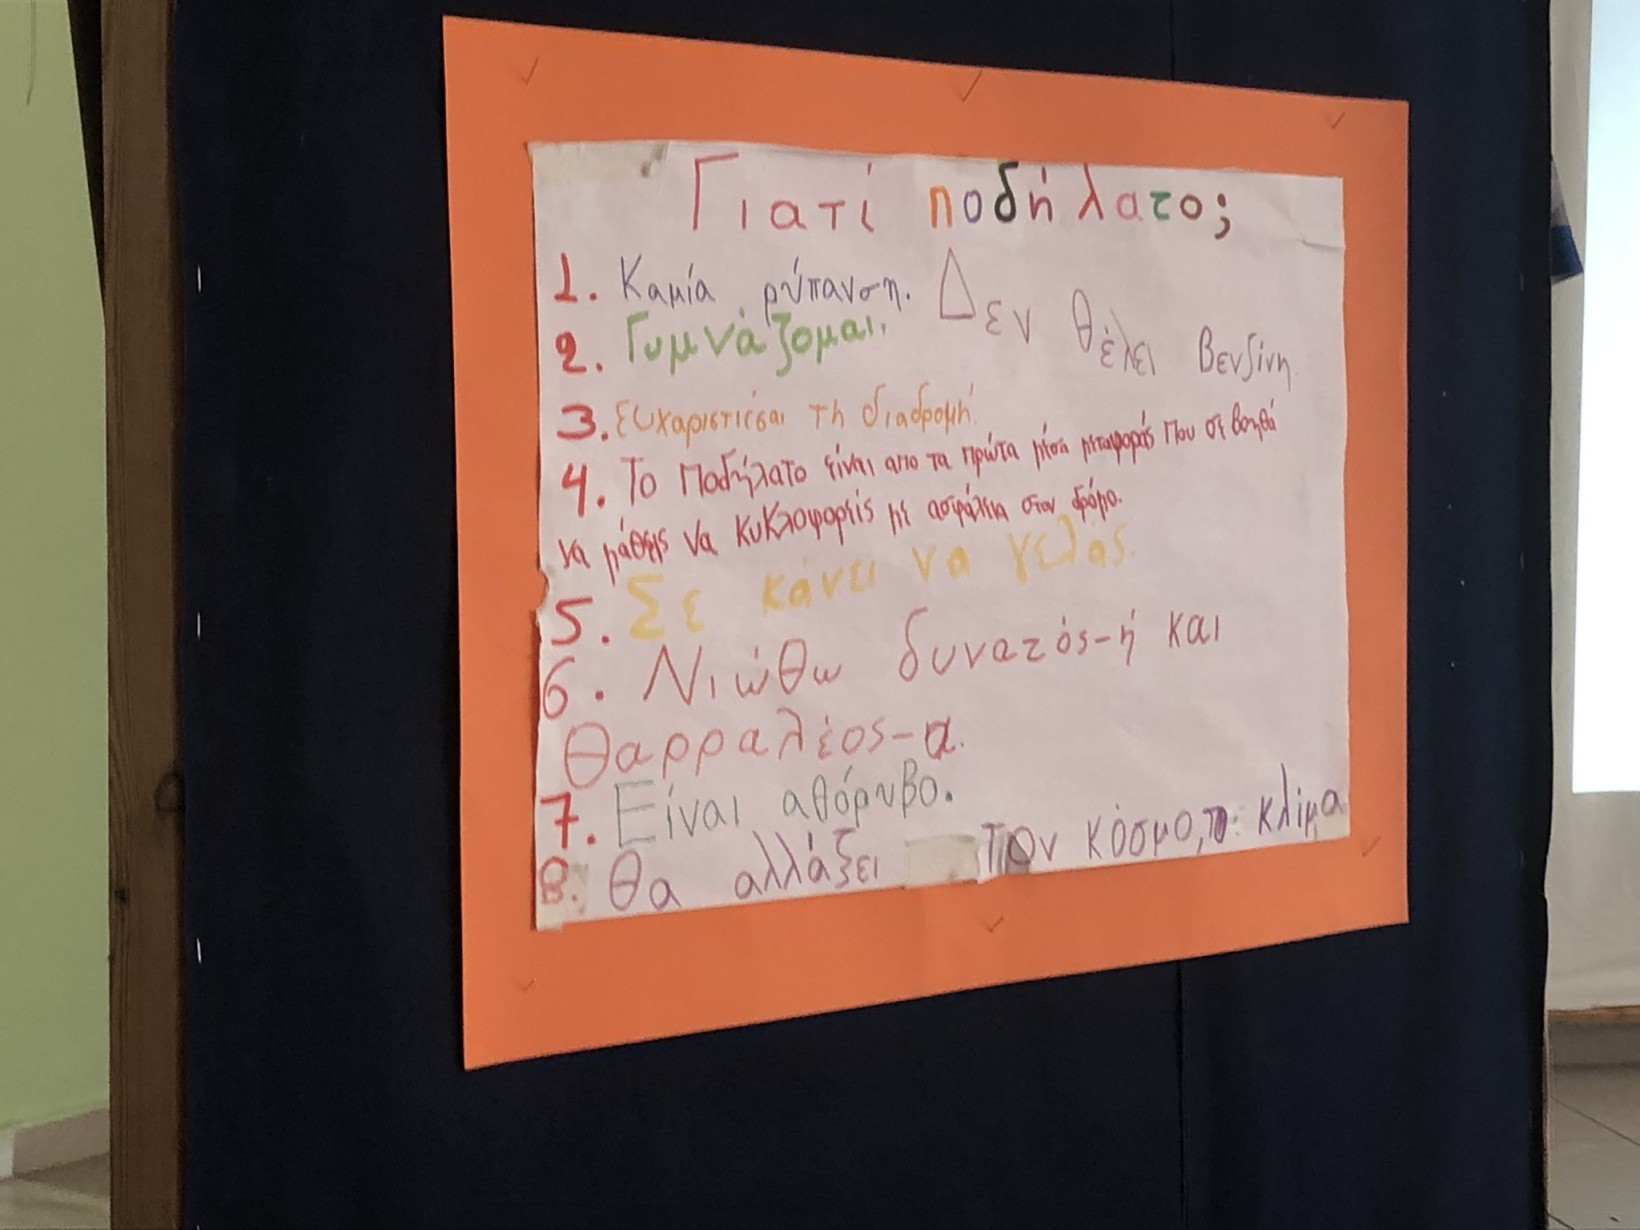 Γιατί ποδήλατο;
1. Καμία ρύπανση. Δεν θέλει βενζίνη.
2. Γυμνάζομαι.
3. Ευχαριστιέσαι τη διαδρομή.
4. Το Ποδήλατο είναι απο τα πρώτα μέσα μεταφοράς Που σε βοηθά
να μάθεις να κυκλοφορείς με ασφάλεια στον δρόμο.
5. Σε κάνει να γελάς.
6. Νιώθω δυνατός-ή και
θαρραλέος-α.
7. Είναι αθόρυβο.
8. Θα αλλάξει τον κόσμο, το κλίμα